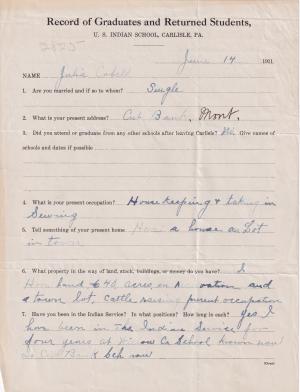 Record of Graduates and Returned Students,
U. S. INDIAN SCHOOL, CARLISLE, PA.
June 14 1911
NAME Julia
1. Are you married and if so to whom? Single
2. What is your present address? Cut Bank, Mont.
3. Did you attend or graduate from any other schools after leaving Carlisle? No Give names of
schools and dates if possible
4. What is your present occupation? House keeping & taking in
Sewing
5. Tell something of your present home a house on Lot
in town
6. What property in the way of land, stock, buildings, or money do you have? I
land 640 acres, on and
a town lot, Cattle raising parent occupation
7. Have you been in the Indian Service? In what positions? How long in each? Yes I
have been in the Indian Service for
four years at Ca School known now
Cut Bank Sch now